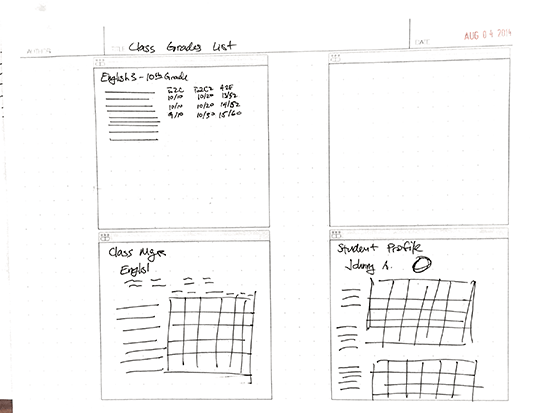 AUTHOR
TITLE Class Grades List
DATE AUG 04 2014
English 3 - 10th Grade
10/10 10/20 13/52
10/10 10/20 14/52
9/10 10/50 15/60
Class Mger
Englsl
Student Profile
Johnny A.